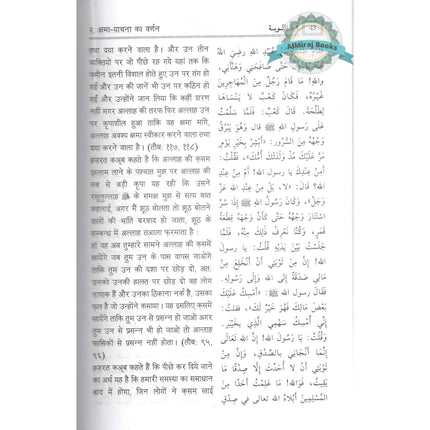 २. क्षमा-याचना का वर्णन
AlMiraj Books
तथा दया करने वाला है। और उन तीन
व्यक्तियों पर जो पीछे रह गये यहां तक कि
जमीन इतनी विशाल होते हुए उन पर तंग हो
गई और उन की जानें भी उन पर कठिन हो
गई और उन्होंने जान लिया कि कहीं शरण
नहीं मगर अल्लाह की तरफ, फिर अल्लाह उन
पर कृपाशील हुआ ताकि वह क्षमा मांगे,
अल्लाह अवश्य क्षमा स्वीकार करने वाला तथा
दया करने वाला है। (तौबः ११७, ११८)
हजरत कअ्ब कहते हैं कि अल्लाह की कसम
इस्लाम लाने के पश्चात मुझ पर अल्लाह की
सब से बड़ी कृपा यह रही कि उसने
रसूलुल्लाह ﷺ के समक्ष मुझ से सत्य बात
कहलाई, अगर मैं झूठ बोलता तो झूठ बोलने
वालों की भांति बरबाद हो जाता, झूठ के
सम्बन्ध में अल्लाह तआला फरमाता है :
हां वह अब तुम्हारे सामने अल्लाह की कसमें
खायेंगे जब तुम उन के पास वापस जाओगे
ताकि तुम उन की दशा पर छोड़ दो, अतः
उनको उनकी हालत पर छोड़ दो वह लोग
नापाक हैं और उनका ठिकाना नर्क है, उसका
फल है जो उन्होंने कमाया। यह इसलिए कसमें
खायेंगे कि तुम उन से प्रसन्न हो जाओ अगर
तुम उन से प्रसन्न भी हो जाओ तो अल्लाह
फासिकों से प्रसन्न नहीं होता। (तौबः ९५,
९६)
हजरत कअ्ब कहते हैं कि पीछे कर दिये जाने
का अर्थ यह है कि हमारी समस्या का समाधान
बाद में होगा, जिन लोगों ने कसम खाई
عُبَيْدِ اللهِ رَضِيَ اللهُ
حَتَّى صَافَحَنِي وَهَنَّأَنِي،
وَاللهِ! مَا قَامَ رَجُلٌ مِنَ المُهَاجِرِينَ
غَيْرُهُ، فَكَانَ كَعْبٌ لا يَنْسَاهَا
لِطَلْحَةَ. قَالَ كَعْبٌ: فَلَمَّا سَلَّمْتُ
عَلَى رَسُولِ اللهِ ﷺ قال وَهُوَ يَبْرُقُ
وَجْهُهُ مِنَ السُّرُورِ: «أَبْشِرْ بِخَيْرِ يَوْمٍ
مَرَّ عَلَيْكَ مُذْ وَلَدَتْكَ أُمُّكَ»، فَقُلْتُ:
أَمِنْ عِنْدِكَ يا رسول اللهِ! أَمْ مِنْ عِنْدِ
اللهِ؟ قال: «لا، بَلْ مِنْ عِنْدِ اللهِ عَزَّ
وَجَلَّ»، وَكَانَ رَسُولُ اللهِ ﷺ إِذَا سُرَّ
اسْتَنَارَ وَجْهُهُ حَتَّى كَأَنَّ وَجْهَهُ قِطْعَةُ
قَمَرٍ، وَكُنَّا نَعْرِفُ ذَلِكَ مِنْهُ، فَلَمَّا
جَلَسْتُ بَيْنَ يَدَيْهِ قُلْتُ: يا رسولَ
اللهِ! إِنَّ مِنْ تَوْبَتِي أَنْ أَنْخَلِعَ مِنْ
مَالِي صَدَقَةً إِلَى اللهِ وَإِلَى رَسُولِهِ.
فَقَالَ رسول الله ﷺ: «أَمْسِكْ عَلَيْكَ
بَعْضَ مَالِكَ فَهُوَ خَيْرٌ لَكَ»، فقلت:
إِنِّي أُمْسِكُ سَهْمِي الَّذِي بِخَيْبَرَ.
وَقُلْتُ: يَا رَسُولَ اللهِ! إِنَّ الله تَعَالَى
إِنَّمَا أَنْجَانِي بِالصِّدْقِ، وَإِنَّ مِنْ
تَوْبَتِي أَنْ لا أُحَدِّثَ إِلَّا صِدْقًا مَا
بَقِيتُ، فَوَاللهِ! مَا عَلِمْتُ أَحَدًا مِنَ
المُسْلِمِينَ أَبْلَاهُ الله تعالى في صِدْقِ